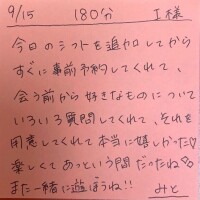 9/15 180分 I様
今日のシフトを追加してから
すぐに事前予約してくれて、
会う前から好きなものについて
いろいろ質問してくれて、それを
用意してくれて本当に嬉しかった♡
楽しくてあっという間だったね
また一緒に遊ぼうね!! みと